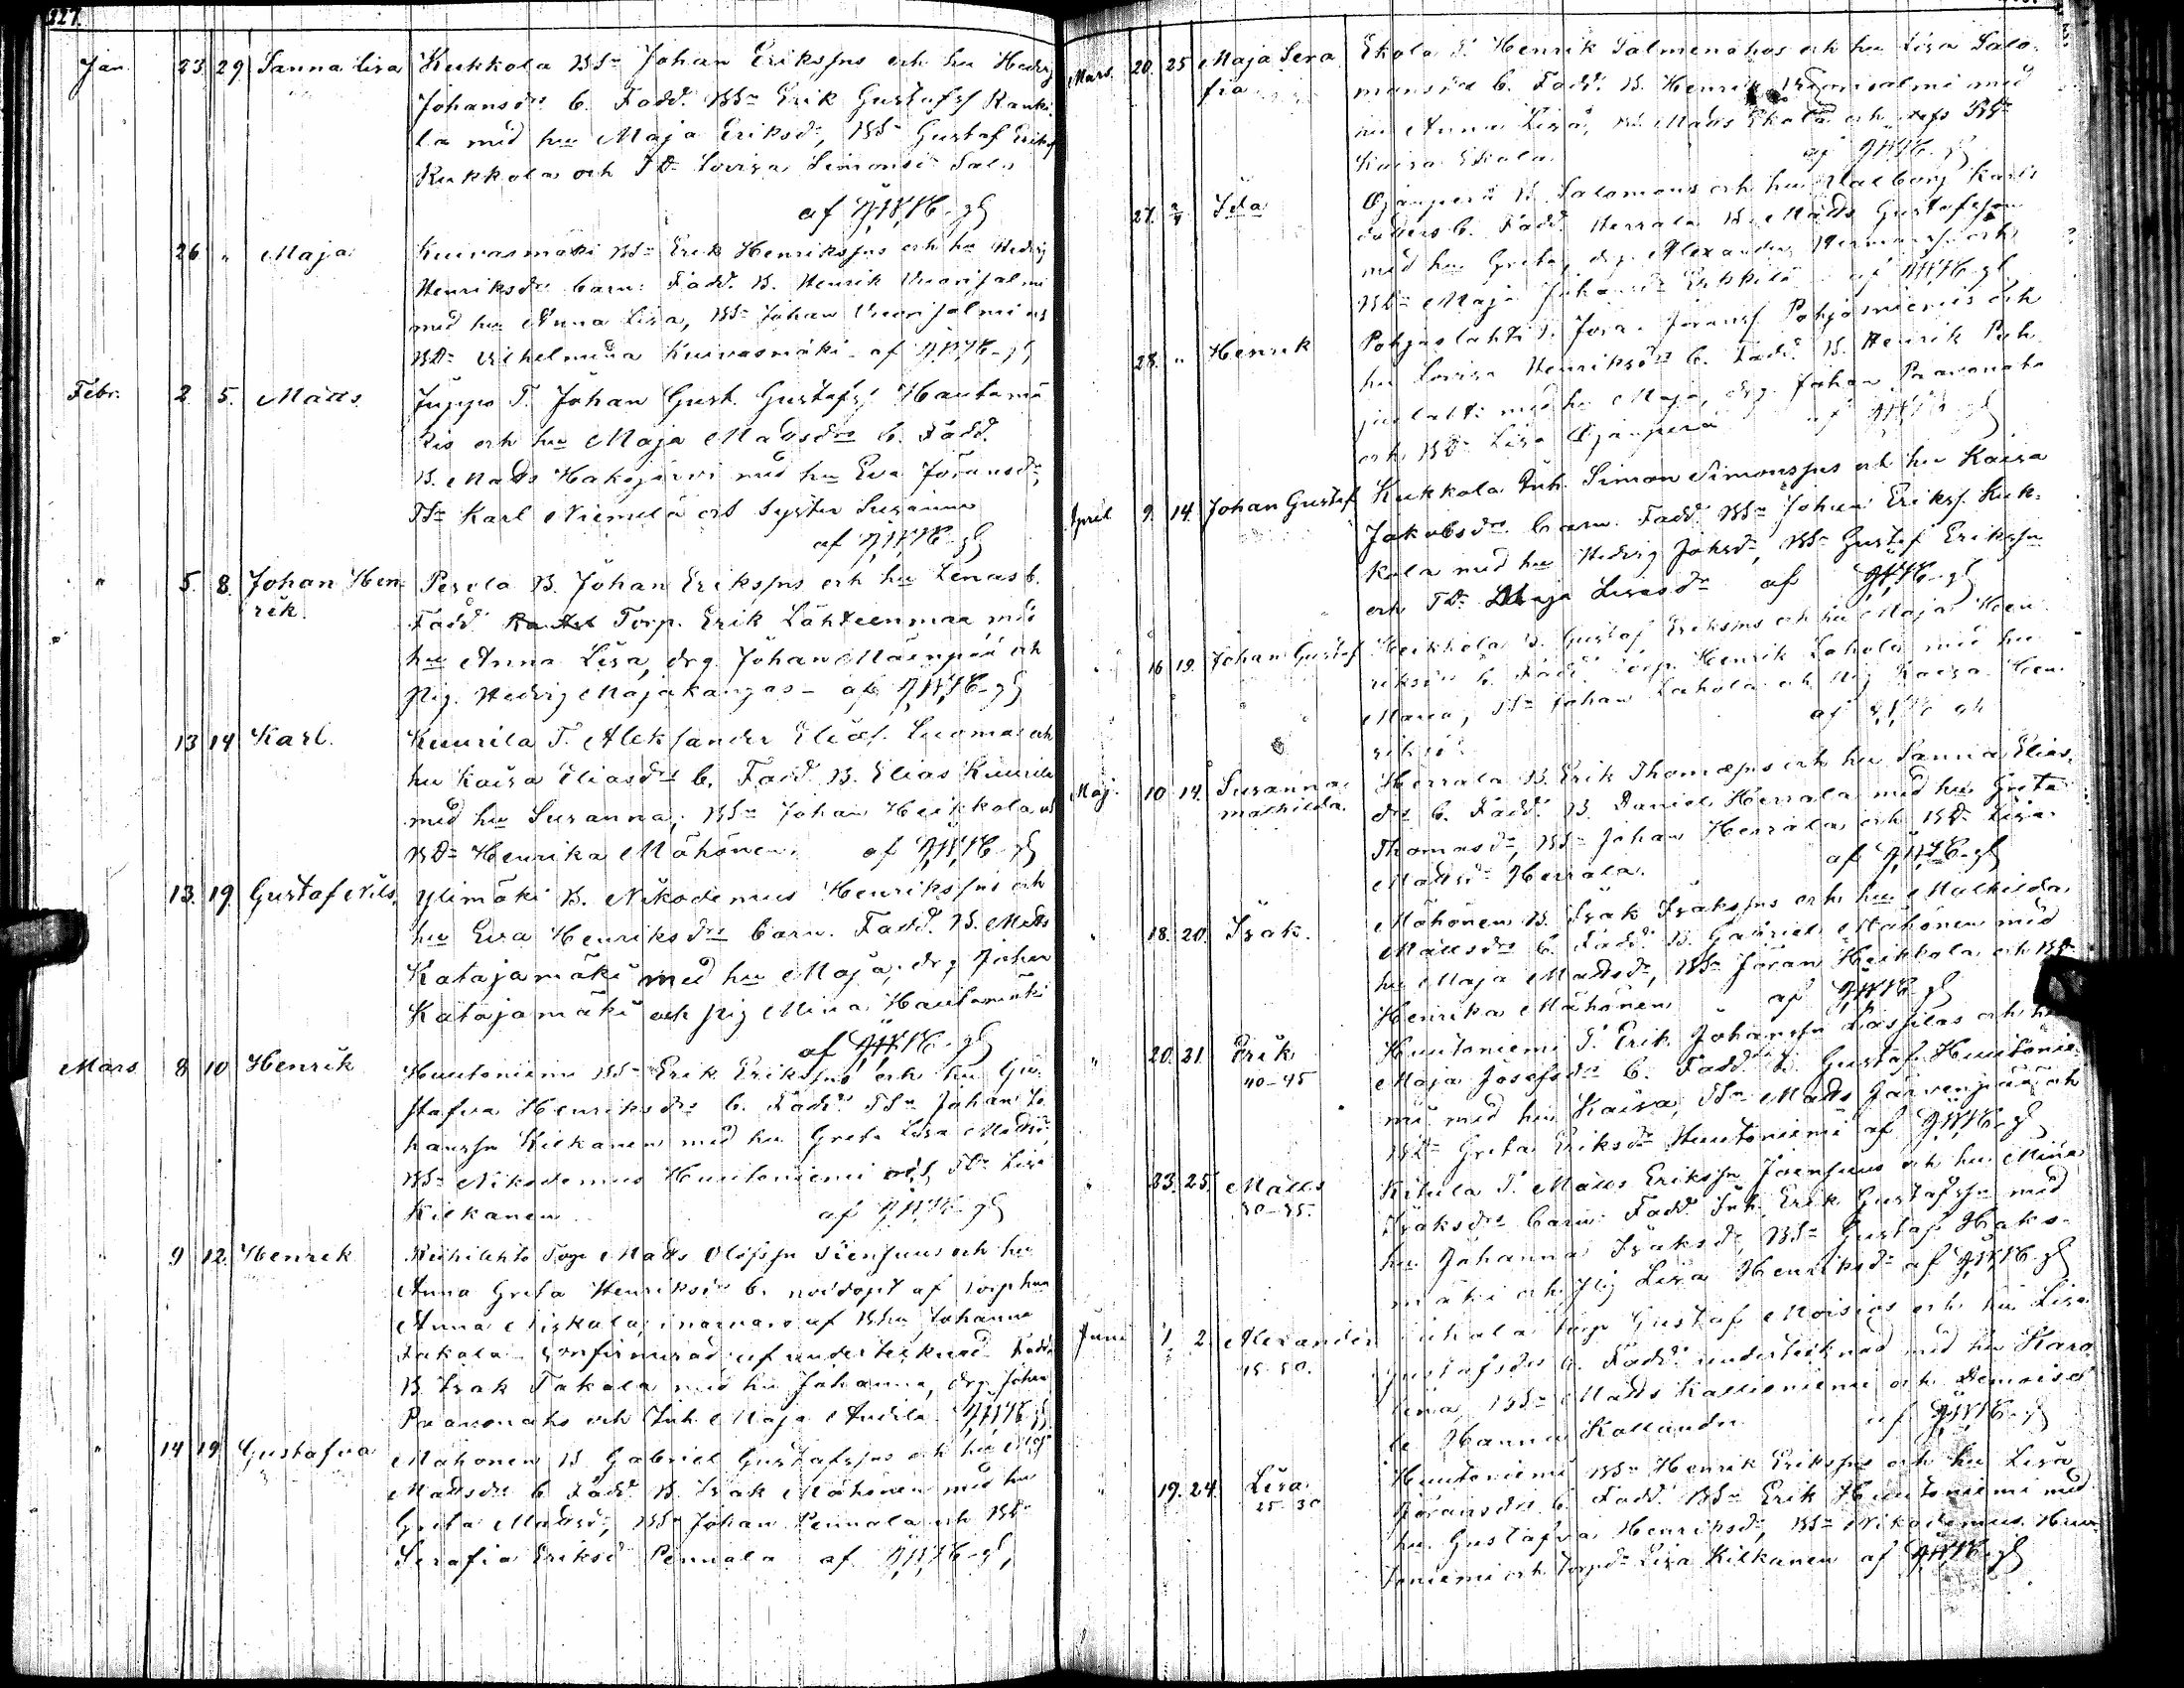 227.
Jan. 23 29 Sanna Lisa Kukkola BSn Johan Erikssons och hu Hedvig
Johansdrs b. Fadd. BSn Erik Gustafss Kauki-
la med hu Maja Eriksdr, BSn Gustaf Erikss
Kukkola och TDr Lovisa Simonsd
af
26 " Maja Kuivasmäki BSn Erik Henrikssons och hu Hedvig
Henriksdrs barn. Fadd. B. Henrik Vuorijalmi
med hu Anna Lisa, BSn Johan Vuorijalmi och
BDr Vilhelmina Kuivasmäki af
Febr. 2 5. Matts Juppo T. Johan Gust. Gustafss Hautamä
kis och hu Maja Mattsdrs b. Fadd.
B. Matts Hakojärvi med hu Eva Göransdr,
TSn Karl Niemelä och syster Susanna
af
" 5. 8. Johan Hen- Perela B. Johan Erikssons och hu Lenas b.
rik. Fadd. Torp. Erik Lähteenmaa med
hu Anna Lisa, drg. Johan Mäenpää och
pig. Hedvig Majakangas af
13 14 Karl. Kuurila T. Aleksander Eliass. Luomas och
hu Kaisa Eliasdrs b. Fadd. B. Elias Kuurila
med hu Susanna, BSn Johan Heikkola och
BDr Henrika Mähönen. af
13. 19. Gustaf Nils, Ylimäki B. Nikodemus Henrikssons och
hu Eva Henriksdrs barn. Fadd. B. Matts
Katajamäki med hu Maja, drg Johan
Katajamäki och pig Mina Hautamäki
af
Mars 8 10 Henrik Huutoniemi BSn Erik Erikssons och hu Gu-
stafva Henriksdrs b. Fadd. TSn Johan Jo
hansson Kilkanen med hu Greta Lisa Mattsd,
BSn Nikodemus Huutoniemi och TDr Lisa
Kilkanen af
" 9 12. Henrik Torp Matts och hu
Anna Greta Henriksdrs b. nöddöpt af torp hun
Anna Niskala, i närvaro af Bhu Johanna
Takala konfirmerad af undertecknad. Fadd.
B. Isak Takala med hu Johanna, drg. Johan
Paavonaho och Inh. Maja Anttila
" 14 19 Gustafva Mähönen B Gabriel Gustafssons och hu Maja
Mattsdrs b Fadd. B. Isak Mähönen med hu
Greta Mattsdr, BSn Johan Pennala och BDr
Serafia Eriksd Pennala af
Mars. 20. 25 Maja Sera Ekola T. Henrik Salmenahos och hu Lisa Salo-
fia monsdrs b. Fadd. B. Henrik Vuorisalmi med
hu Anna Lisa, Matts Ekola och
Kaisa Ekola. af
27. 2/4 Ida Ojanperä B. Salomons och hu Valborg Karls
dotters b. Fadd. Herrala B. Matts Gustafsson
med hu Greta, drg. Alexander Hermansson och
BDr Maja Johansdr Erkkilä af
28. " Henrik Pohjaslahti T. Göra. Göranss Pohjasniemis och
hu Lovisa Henriksdrs b. Fadd. B. Henrik Poh-
jaslahti med hu Maja, drg. Johan Paavonaho
och BDr Lisa Ojanperä af
April 9. 14. Johan Gustaf Kukkola Inh. Simon Simonssons och hu Kaisa
Jakobsdrs barn. Fadd. BSn Johan Erikss. Kuk-
kola med hu Hedvig Johsdr, BSn Gustaf Eriksson
och TDr Maja af
" 16 19. Johan Gustaf Heikkola B. Gustaf Erikssons och hu Maja Hen
riksdrs b. Fadd. Torp. Henrik Lahola med hu
Maria, TSn Johan Lahola och pig Kaisa Hen-
riksd. af
Maj. 10 14. Susanna Herrala B. Erik Thomassons och hu Sanna Elias-
mathilda. drs b. Fadd. B. Daniel Herrala med hu Greta
Thomasdr, BSn Johan Herrala och BDr Lisa
Mattsdr Herrala. af
" 18. 20. Isak. Mähönen B. Isak Isakssons och hu Mathilda
Mattsdrs b. Fadd. B. Gabriel Mähönen med
hu Maja Mattsdr, BSn Göran Heikkola och BDr
Henrika Mähönen af
" 20. 21. Erik Huutoniemi T. Erik Johansson Lassilas och hu
40-45 Maja Josefsdrs b. Fadd. B. Gustaf Huutonie-
mi med hu Kaisa, TSn Matts Järvenpää och
BDr Greta Eriksdr Huutoniemi af
" 23. 25. Matts Kitula T. Matts Eriksson Joensuus och hu Mina
30-35. Isaksdrs barn. Fadd. Inh. Erik Gustafsson med
hu Johanna Isaksdr, BSn Gustaf Hako-
mäki och pig Lisa Henriksdr af
Juni 1. 2. Alexander torp Gustaf Moisios och hu Lisa
45-50. Gustafsdrs b. Fadd. undertecknad med hu Karo-
lina, BSn Matts Kallioniemi och Demoisel
le Hanna af
" 19. 24. Lisa Huutoniemi BSn Henrik Erikssons och hu Lisa
25-30 Göransdrs b. Fadd. BSn Erik Huutoniemi med
hu Gustafva Henriksdr, BSn Nikodemus Huu-
toniemi och Torpdr Lisa Kilkanen af